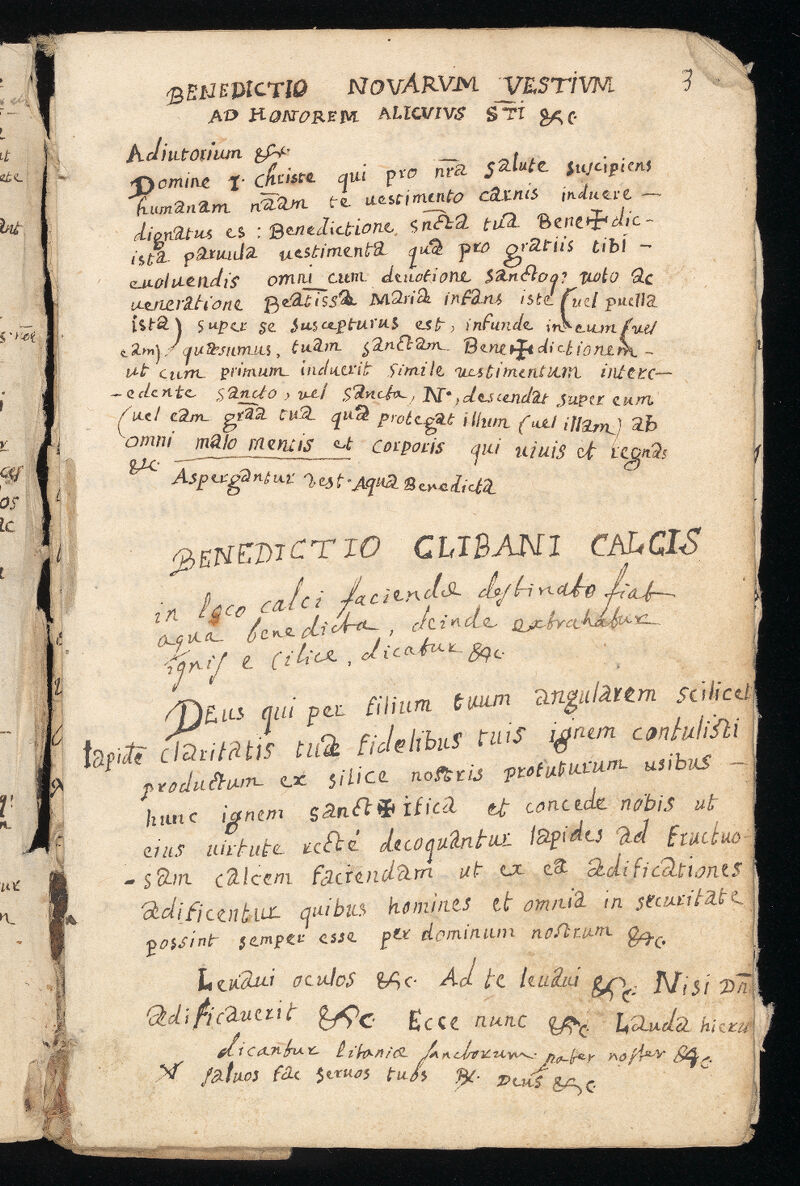 3
BENEDICTIO NOVARVM VESTIVM
AD HONOREM ALICVIVS S̄T̄I &c.
Adiutorium &c.
Domine I. Christe qui pro nr̄a salute suscipiens
humanam nāam te uestimento carnis induere —
dignatus es : Benedictione sn̄cta tua Bene✠dic-
ista paruula uestimenta quæ pro gratiis tibi -
euoluendis omni cum deuotione sanctoq? uoto ac
ueneratione Beatiss̄æ Mariæ infans iste (uel puella
ista) super se suscepturus est, infunde in eum (uel
eam) quæsumus, tuam sanctam Bene✠dictionem -
ut cum primum induerit simile uestimentum interc-
-edente sancto, uel sancta, N., descendat super eum
(uel eam grāa tua quæ protegat illum (uel illam) ab
omni malo mentis et corporis qui uiuis et regnas
&c.
Aspergantur Vest. Aqua Benedicta
BENEDICTIO CLIBANI CALCIS
in loco calci faciendæ destinato fiat
aqua benedicta, deinde extrahatur
ignis e silice, dicatur &c.
DEus qui per filium tuum angularem scilicet
lapidē claritatis tuæ fidelibus tuis ignem contulisti
productum ex silice nostris profuturum usibus —
hunc ignem sanct✠ifica et concede nobis ut
eius uirtute recté decoquantur lapides ad fructuo-
-sam calcem faciendam ut ex ea ædificationes
ædificentur quibus homines et omnia in securitate
possint semper esse per dominum nostrum &c.
Leuaui oculos &c. Ad te leuaui &c. Nisi Dn̄
ædificauerit &c. Ecce nunc &c Lauda hieru
dicantur litaniæ sanctorum pater noster &c.
℣ saluos fac seruos tuos ℟. Deus &c.